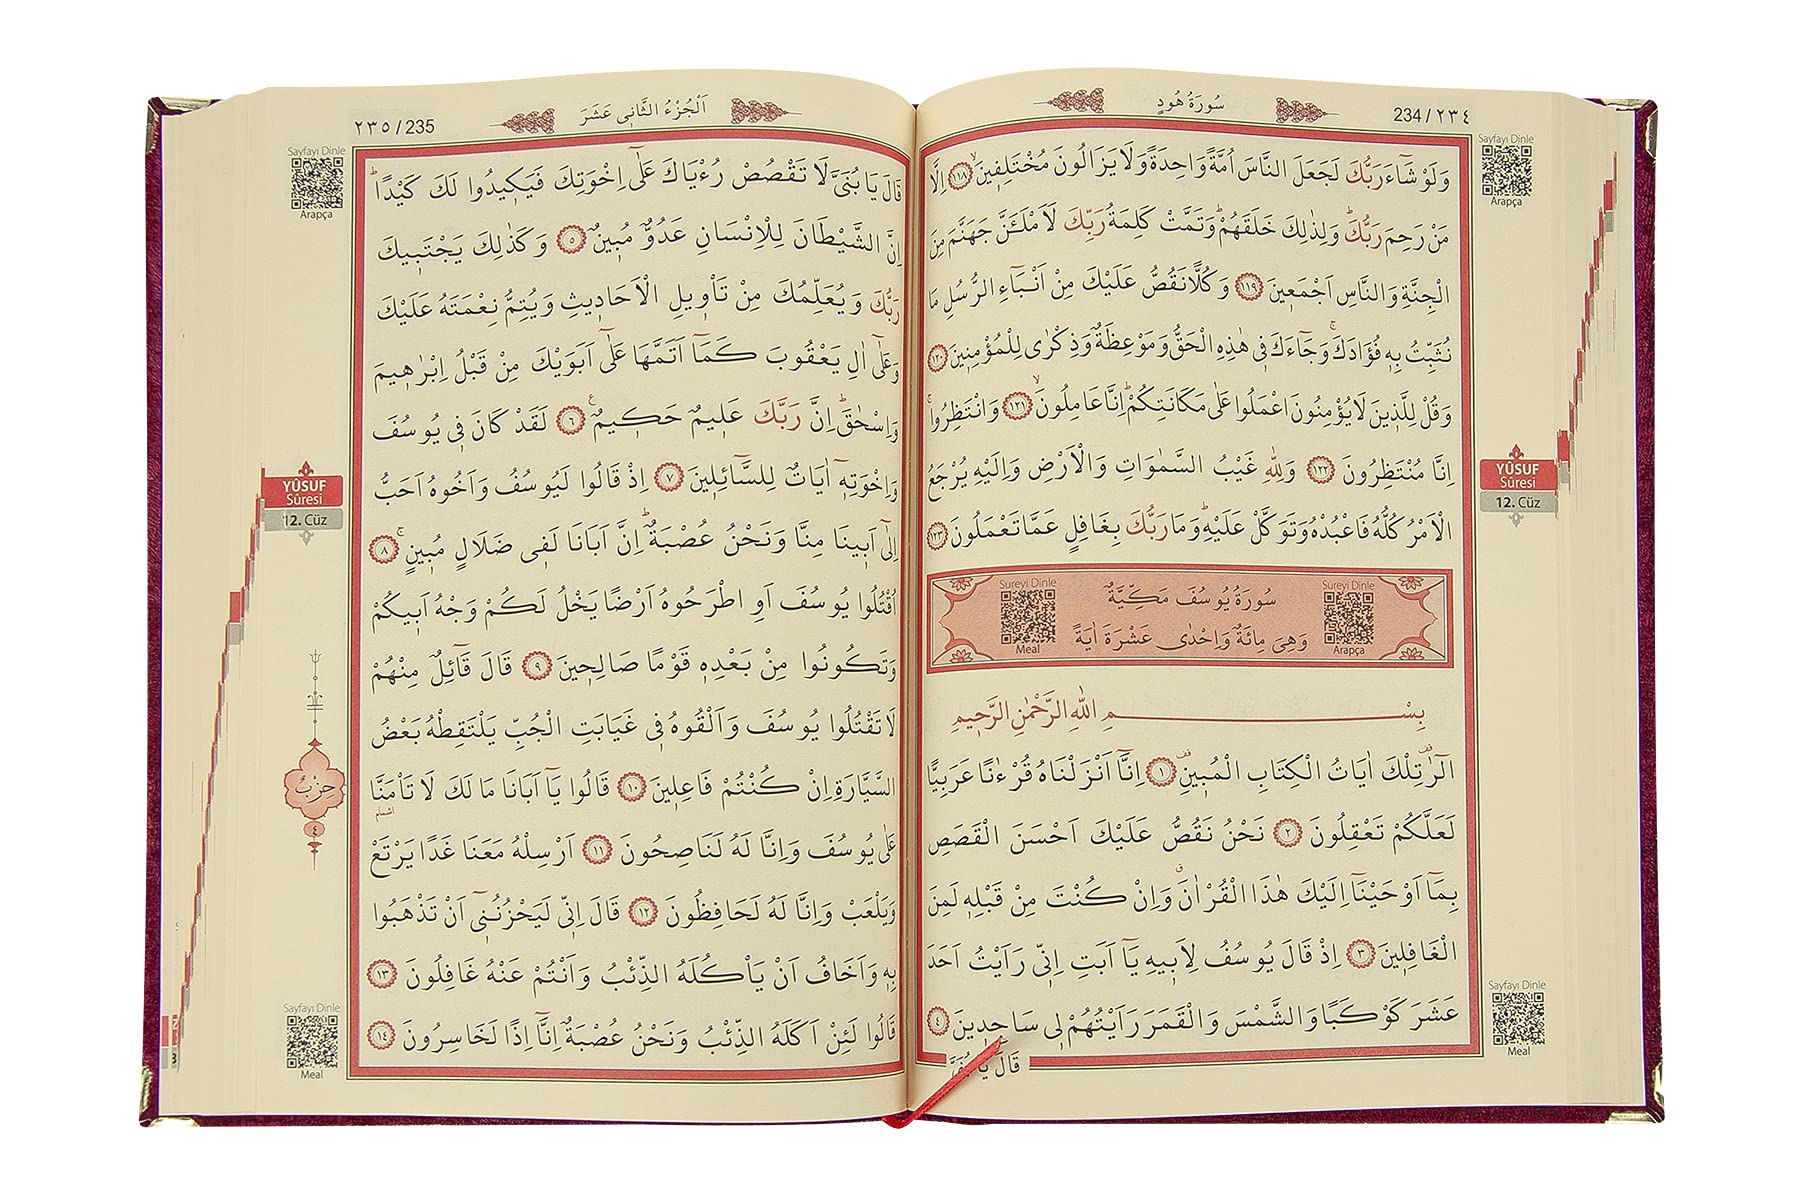 سُورَةُ هُودٍ
234 / ٢٣٤
Sayfayı Dinle
Arapça
وَلَوْ شَٓاءَ رَبُّكَ لَجَعَلَ النَّاسَ اُمَّةً وَاحِدَةً وَلَا يَزَالُونَ مُخْتَلِف۪ينَۙ ﴿١١٨﴾ اِلَّا
مَنْ رَحِمَ رَبُّكَۜ وَلِذٰلِكَ خَلَقَهُمْۜ وَتَمَّتْ كَلِمَةُ رَبِّكَ لَاَمْلَـَٔنَّ جَهَنَّمَ مِنَ
الْجِنَّةِ وَالنَّاسِ اَجْمَع۪ينَ ﴿١١٩﴾ وَكُلًّا نَقُصُّ عَلَيْكَ مِنْ اَنْبَٓاءِ الرُّسُلِ مَا
نُثَبِّتُ بِه۪ فُؤٰادَكَۚ وَجَٓاءَكَ ف۪ي هٰذِهِ الْحَقُّ وَمَوْعِظَةٌ وَذِكْرٰى لِلْمُؤْمِن۪ينَ ﴿١٢٠﴾
وَقُلْ لِلَّذ۪ينَ لَا يُؤْمِنُونَ اعْمَلُوا عَلٰى مَكَانَتِكُمْۜ اِنَّا عَامِلُونَۙ ﴿١٢١﴾ وَانْتَظِرُواۚ
اِنَّا مُنْتَظِرُونَ ﴿١٢٢﴾ وَلِلّٰهِ غَيْبُ السَّمٰوَاتِ وَالْاَرْضِ وَاِلَيْهِ يُرْجَعُ
الْاَمْرُ كُلُّهُ فَاعْبُدْهُ وَتَوَكَّلْ عَلَيْهِۜ وَمَا رَبُّكَ بِغَافِلٍ عَمَّا تَعْمَلُونَ ﴿١٢٣﴾
YÛSUF
Sûresi
12. Cüz
Sureyi Dinle
Arapça
سُورَةُ يُوسُفَ مَكِّيَّةٌ
وَهِيَ مِائَةٌ وَاِحْدٰى عَشْرَةَ اٰيَةً
Sureyi Dinle
Meal
بِسْمِ اللّٰهِ الرَّحْمٰنِ الرَّح۪يمِ
الٓرٰ۠ تِلْكَ اٰيَاتُ الْكِتَابِ الْمُب۪ينِ۠ ﴿١﴾ اِنَّٓا اَنْزَلْنَاهُ قُرْءٰنًا عَرَبِيًّا
لَعَلَّكُمْ تَعْقِلُونَ ﴿٢﴾ نَحْنُ نَقُصُّ عَلَيْكَ اَحْسَنَ الْقَصَصِ
بِمَٓا اَوْحَيْنَٓا اِلَيْكَ هٰذَا الْقُرْاٰنَۗ وَاِنْ كُنْتَ مِنْ قَبْلِه۪ لَمِنَ
الْغَافِل۪ينَ ﴿٣﴾ اِذْ قَالَ يُوسُفُ لِاَب۪يهِ يَٓا اَبَتِ اِنّ۪ي رَاَيْتُ اَحَدَ
عَشَرَ كَوْكَبًا وَالشَّمْسَ وَالْقَمَرَ رَاَيْتُهُمْ ل۪ي سَاجِد۪ينَ ﴿٤﴾
Sayfayı Dinle
Meal
قَالَ يَا
اَلْجُزْءُ الثَّان۪ي عَشَرَ
٢٣٥ / 235
Sayfayı Dinle
Arapça
قَالَ يَا بُنَيَّ لَا تَقْصُصْ رُءْيَاكَ عَلٰٓى اِخْوَتِكَ فَيَك۪يدُوا لَكَ كَيْدًاۜ
اِنَّ الشَّيْطَانَ لِلْاِنْسَانِ عَدُوٌّ مُب۪ينٌ ﴿٥﴾ وَكَذٰلِكَ يَجْتَب۪يكَ
رَبُّكَ وَيُعَلِّمُكَ مِنْ تَأْو۪يلِ الْاَحَاد۪يثِ وَيُتِمُّ نِعْمَتَهُ عَلَيْكَ
وَعَلٰٓى اٰلِ يَعْقُوبَ كَمَٓا اَتَمَّهَا عَلٰٓى اَبَوَيْكَ مِنْ قَبْلُ اِبْرٰه۪يمَ
وَاِسْحٰقَۜ اِنَّ رَبَّكَ عَل۪يمٌ حَك۪يمٌ۟ ﴿٦﴾ لَقَدْ كَانَ ف۪ي يُوسُفَ
وَاِخْوَتِه۪ٓ اٰيَاتٌ لِلسَّٓائِل۪ينَ ﴿٧﴾ اِذْ قَالُوا لَيُوسُفُ وَاَخُوهُ اَحَبُّ
اِلٰٓى اَب۪ينَا مِنَّا وَنَحْنُ عُصْبَةٌۜ اِنَّ اَبَانَا لَف۪ي ضَلَالٍ مُب۪ينٍۚ ﴿٨﴾
اُقْتُلُوا يُوسُفَ اَوِ اطْرَحُوهُ اَرْضًا يَخْلُ لَكُمْ وَجْهُ اَب۪يكُمْ
وَتَكُونُوا مِنْ بَعْدِه۪ قَوْمًا صَالِح۪ينَ ﴿٩﴾ قَالَ قَٓائِلٌ مِنْهُمْ
لَا تَقْتُلُوا يُوسُفَ وَاَلْقُوهُ ف۪ي غَيَابَتِ الْجُبِّ يَلْتَقِطْهُ بَعْضُ
السَّيَّارَةِ اِنْ كُنْتُمْ فَاعِل۪ينَ ﴿١٠﴾ قَالُوا يَٓا اَبَانَا مَا لَكَ لَا تَأْمَنَّا
اشمام
عَلٰى يُوسُفَ وَاِنَّا لَهُ لَنَاصِحُونَ ﴿١١﴾ اَرْسِلْهُ مَعَنَا غَدًا يَرْتَعْ
وَيَلْعَبْ وَاِنَّا لَهُ لَحَافِظُونَ ﴿١٢﴾ قَالَ اِنّ۪ي لَيَحْزُنُن۪ٓي اَنْ تَذْهَبُوا
بِه۪ وَاَخَافُ اَنْ يَأْكُلَهُ الذِّئْبُ وَاَنْتُمْ عَنْهُ غَافِلُونَ ﴿١٣﴾
قَالُوا لَئِنْ اَكَلَهُ الذِّئْبُ وَنَحْنُ عُصْبَةٌ اِنَّٓا اِذًا لَخَاسِرُونَ ﴿١٤﴾
YÛSUF
Sûresi
12. Cüz
حِزْبٌ
٤
Sayfayı Dinle
Meal